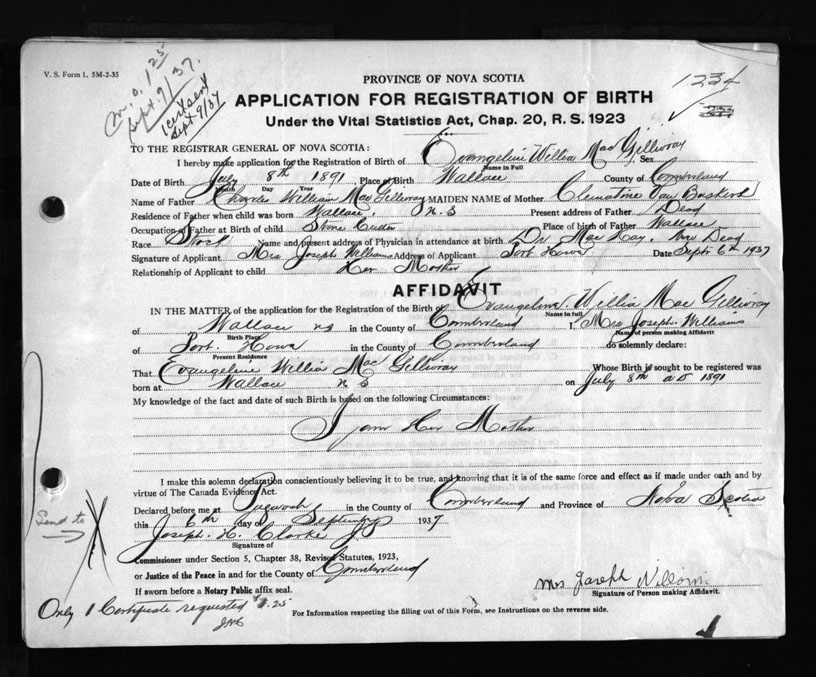 V. S. Form 1. 5M-2-35
m.o. 1 25
Sept. 9/37.
Cert sent
Sept 9/37
1234
PROVINCE OF NOVA SCOTIA
APPLICATION FOR REGISTRATION OF BIRTH
Under the Vital Statistics Act, Chap. 20, R. S. 1923
TO THE REGISTRAR GENERAL OF NOVA SCOTIA:
I hereby make application for the Registration of Birth of Evangeline Willia Mac Gillivray Sex
Name in Full
Date of Birth July 8th 1891 Place of Birth Wallace County of Cumberland
Month Day Year
Name of Father Charles William MacGillivray MAIDEN NAME of Mother Clementine Van
Residence of Father when child was born Wallace, N.S Present address of Father Dead
Occupation of Father at Birth of child Stone Cutter Place of birth of Father Wallace
Race Scotch Name and present address of Physician in attendance at birth Dr. MacKay. Dead
Signature of Applicant Mrs Joseph Williams Address of Applicant Port Howe Date Sept 6th 1937
Relationship of Applicant to child Her Mother
AFFIDAVIT
IN THE MATTER of the application for the Registration of the Birth of Evangeline Willia Mac Gillivray
Name in full
of Wallace NS in the County of Cumberland I, Mrs Joseph Williams
Birth Place Name of person making Affidavit
of Port Howe in the County of Cumberland do solemnly declare:
Present Residence
That Evangeline Willia Mac Gillivray Whose Birth is sought to be registered was
born at Wallace N S on July 8th AD 1891
My knowledge of the fact and date of such Birth is based on the following Circumstances:
I am Her Mother
I make this solemn declaration conscientiously believing it to be true, and knowing that it is of the same force and effect as if made under oath and by
virtue of The Canada Evidence Act.
Declared before me at Pugwash in the County of Cumberland and Province of Nova Scotia
this 6th day of September 1937
Joseph H. Clarke J.P.
Signature of
Commissioner under Section 5, Chapter 38, Revised Statutes, 1923,
or Justice of the Peace in and for the County of Cumberland
If sworn before a Notary Public affix seal.
Mrs Joseph Williams
Signature of Person making Affidavit.
Send to
Only 1 Certificate requested $1.25
For Information respecting the filling out of this Form, see Instructions on the reverse side.